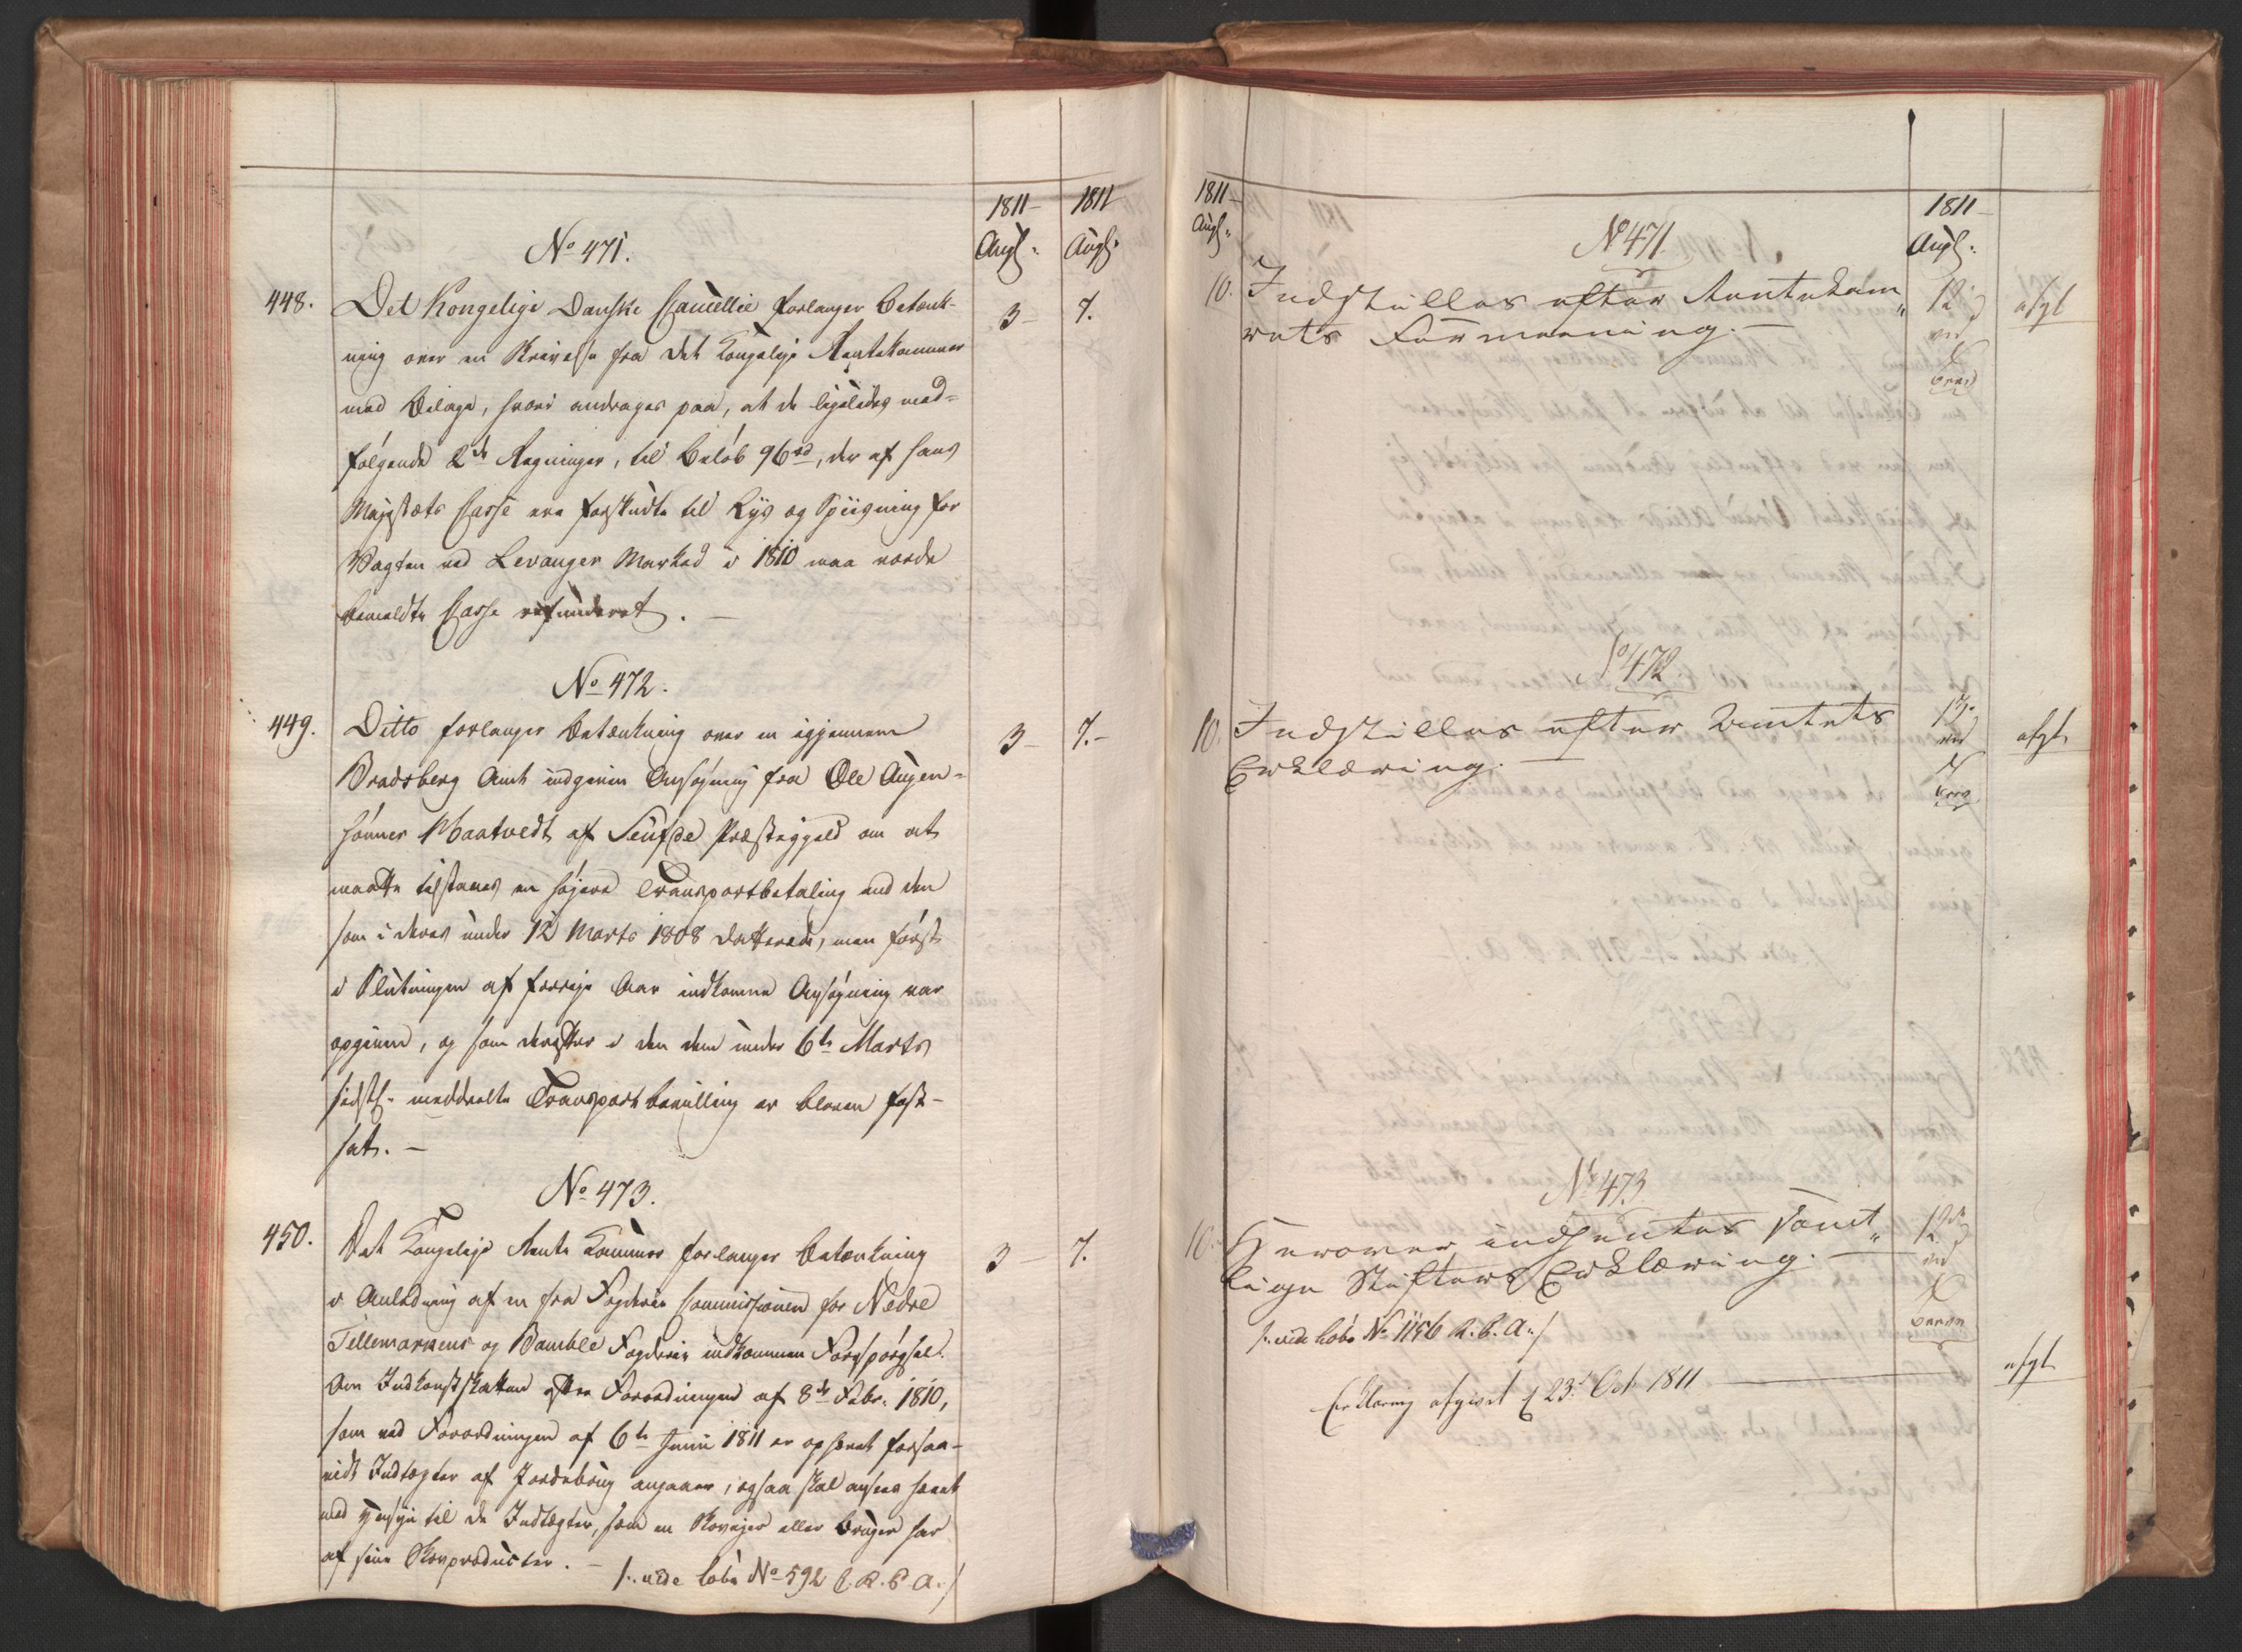 1811
Augs:
1811
Augs:
No 471.
448.
Det Kongelige Danske Cancellie forlanger Betænk-
ning over en Skrivelse fra det Kongelige Rentekammer
med Bilage, hvori andrages paa, at de ligeledes med-
følgende 2de Regninger, til Beløb 96 rd, der af hans
Majestæts Casse ere forskudte til Lys og Spiisning for
Vagten ved Levanger Marked i 1810 maa vorde
bemeldte Casse refunderet. —
3 —
7.
No 472.
449.
Ditto forlanger Betænkning over en igjennem
Bradsberg Amt indgiven Ansøgning fra Ole
sønner af Præstegjeld om at
maatte tilstaaes en højere Transportbetaling end den
som i deres under 12 Marts 1808 datterede, men først
i Slutningen af forrige Aar indkomne Ansøgning var
opgiven, og som derefter i den dem under 6te Marts
sidstl. meddeelte Transportbevilling er bleven fast-
sat. —
3 —
7. —
No 473.
450.
Det Kongelige Rente Kammer forlanger Betænkning
i Anledning af en fra Fogderie Commissionen for Nedre
Tellemarkens og Bamble Fogderie indkommen Forespørgsel.
Om Indkomstskatten efter Forordningen af 8de Febr. 1810,
som ved Forordningen af 6te Junii 1811 er ophævet forsaa-
vidt Indtægter af Jordebrug angaaer, ogsaa skal ansees hævet
med Hensyn til de Indtægter, som en Skovejer eller Bruger har
af sine Skovproducter. —
/: vide Løbe No 592 C. R. C. A. :/
3 —
7.
1811 —
Augs:
1811 —
Augs:
No 471.
10.
Indstilles efter Rentekam
merets Formeening. —
12
ved
afgt
No 472.
10.
Indstilles efter Amtets
Erklæring. —
13.
ved
afgt.
No 473.
10.
Herover indhentes samt
lige Stifters Erklæring. —
12
ved
/: vide Løbe No 1156 R. C. A. :/
Erklæring afgivet d 23. Oct 1811
afgt.